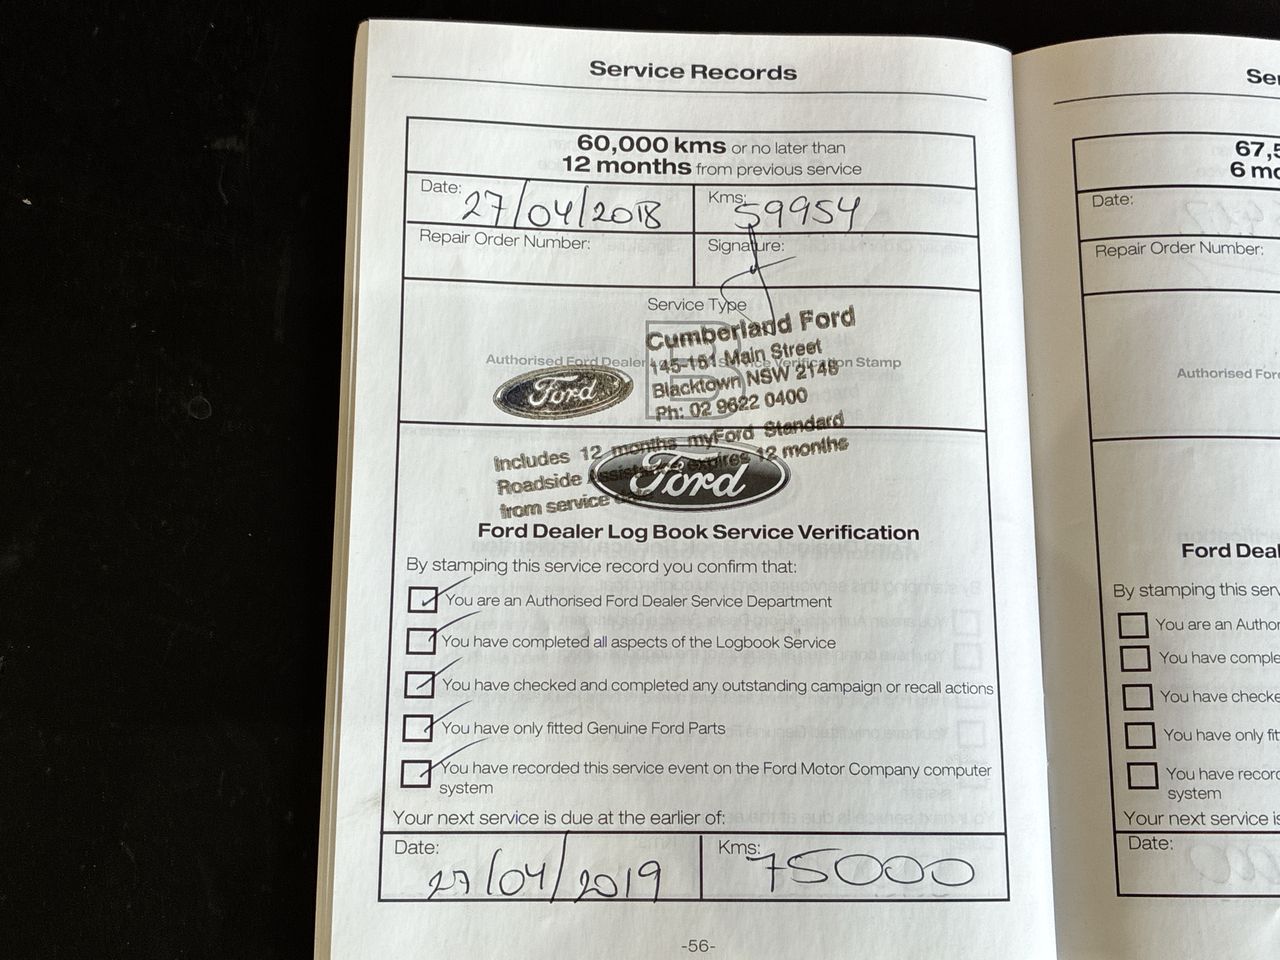 Service Records
60,000 kms or no later than
12 months from previous service
Date: 27/04/2018 Kms: 59954
Repair Order Number: Signature:
Service Type
B
Authorised Ford Dealer Verification Stamp
Cumberland Ford
145-161 Main Street
Blacktown NSW 2148
Ph: 02 9622 0400
Ford
Includes 12 months myFord Standard
Roadside expires 12 months
from service
Ford
Ford Dealer Log Book Service Verification
By stamping this service record you confirm that:
You are an Authorised Ford Dealer Service Department
You have completed all aspects of the Logbook Service
You have checked and completed any outstanding campaign or recall actions
You have only fitted Genuine Ford Parts
You have recorded this service event on the Ford Motor Company computer
system
Your next service is due at the earlier of:
Date: 27/04/2019 Kms: 75000
-56-
67,5
6 mo
Date:
Repair Order Number:
Authorised For
Ford Deal
By stamping this serv
You are an Author
You have comple
You have checke
You have only fit
You have record
system
Your next service is
Date: